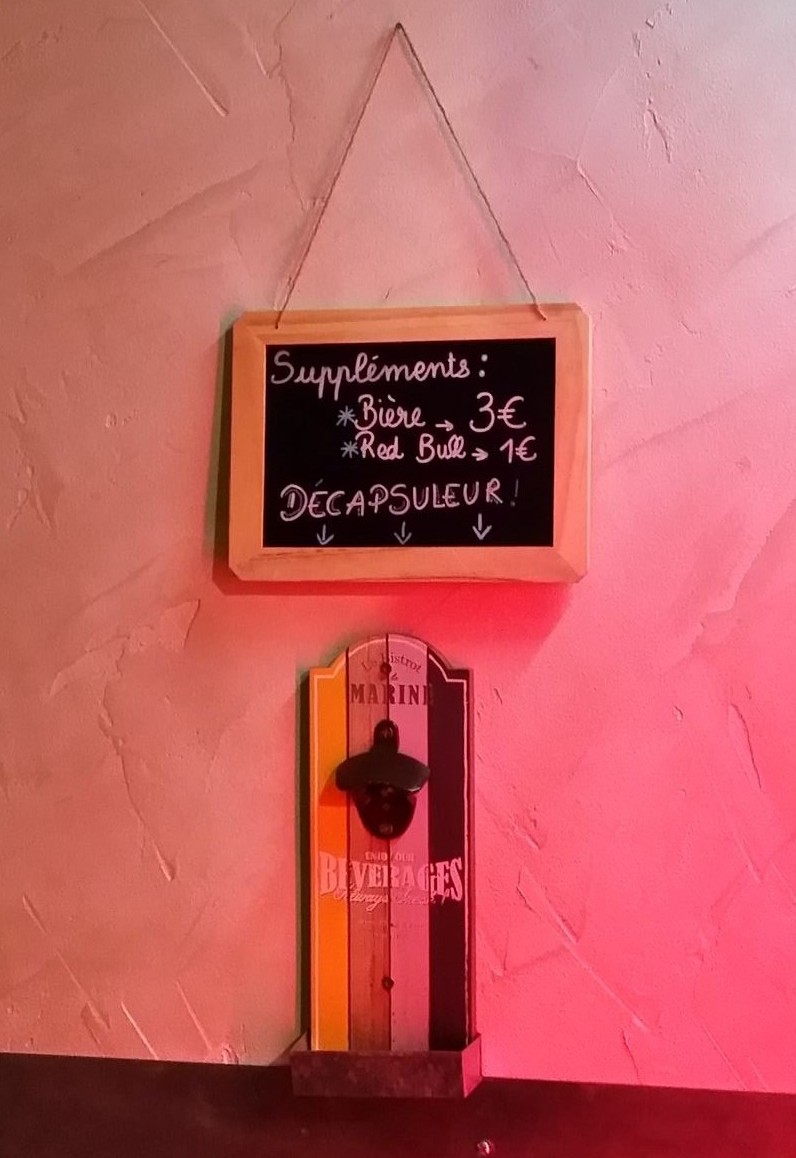 Suppléments :
*Bière → 3€
*Red Bull → 1€
DÉCAPSULEUR !
↓ ↓ ↓
Le Bistrot
de
MARINE
ENJOY OUR
BEVERAGES
Always